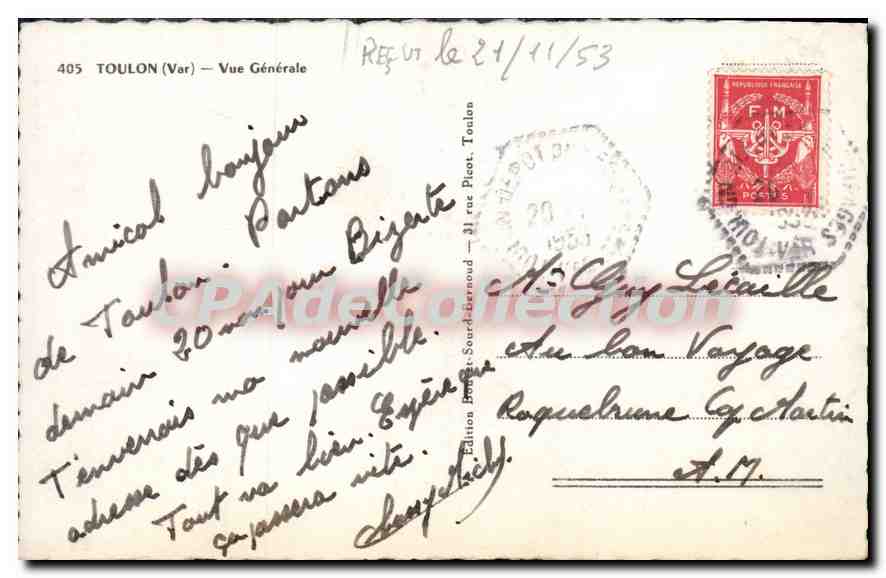 405 TOULON (Var) — Vue Générale
REÇUT le 21/11/53
Amical bonjour
de Toulon. Partons
demain 20 nov pour Bizerte
T'enverrais ma nouvelle
adresse dès que possible.
Tout va bien. Espère que
ça passera vite.
Edition Bouvet-Sourd-Bernoud — 31 rue Picot, Toulon
REPUBLIQUE FRANÇAISE
F M
POSTES
Mr Guy Lécaille
Au bon Voyage
Roquebrune Cap Martin
A.M.
CPAdeCollection